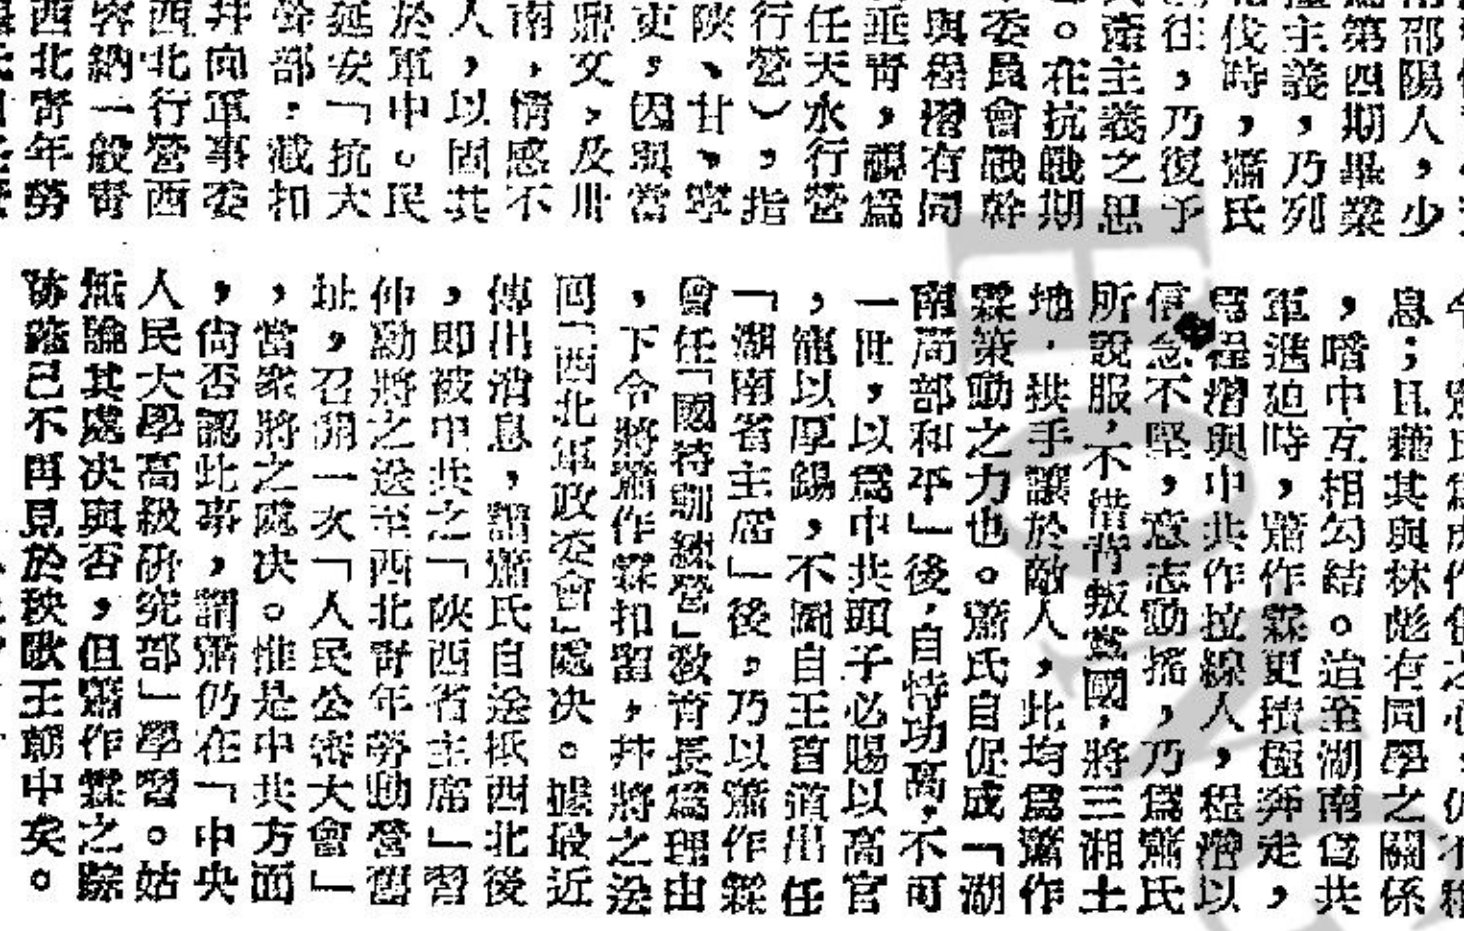 南邵陽人，少
第四期畢業
主義，乃列
伐時，蕭氏
往，乃復予
產主義之思
。在抗戰期
委員會戰幹
與程潛有同
垂青，視爲
任天水行營
行營），指
陝、甘、寧
吏，因與當
鼎文，及卅
南，情感不
人，以固共
於軍中。民
延安「抗大
部，截扣
并向軍事委
西北行營西
容納一般青
西北青年勞
息；且藉其與林彪有同學之關係
，暗中互相勾結。迨至湖南爲共
軍進迫時，蕭作霖更積極奔走，
爲程潛與中共作拉線人，程潛以
信念不堅，意志動搖，乃爲蕭氏
所說服，不惜背叛黨國，將三湘土
地，拱手讓於敵人，此均爲蕭作
霖策動之力也。蕭氏自促成「湖
南局部和平」後，自恃功高，不可
一世，以爲中共頭子必賜以高官
，寵以厚錫，不圖自王首道出任
「湖南省主席」後，乃以蕭作霖
會任「國特訓練營」敎育長爲理由
，下令將蕭作霖扣留，并將之送
回「西北軍政委會」處決。據最近
傳出消息，謂蕭氏自送抵西北後
，即被中共之「陝西省主席」習
仲勳將之送至西北青年勞動營舊
址，召開一次「人民公審大會」
，當衆將之處決。惟是中共方面
，尙否認此事，謂蕭仍在「中央
人民大學高級研究部」學習。姑
無論其處決與否，但蕭作霖之踪
跡諒已不再見於秧歌王朝中矣。